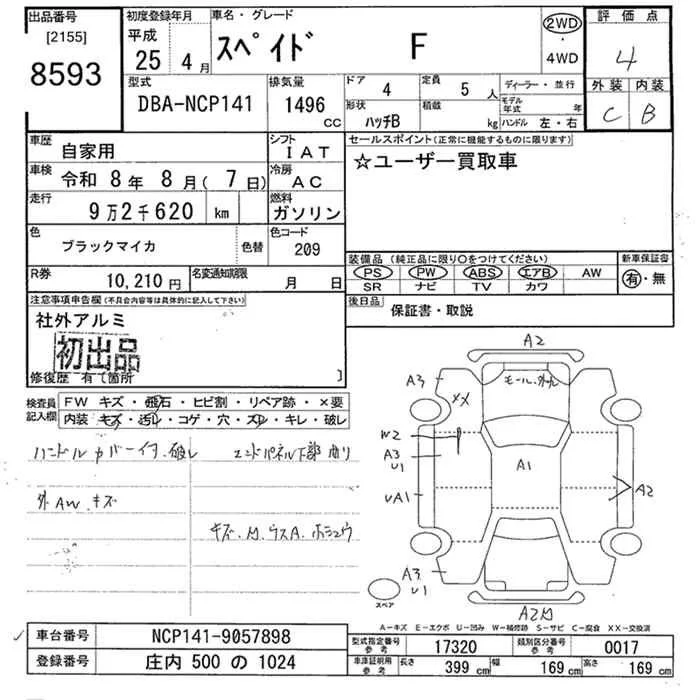 出品番号 [2155] 8593
初度登録年月 平成 25 4月
車名・グレード スペイド F
2WD・4WD
評価点 4
外装 C 内装 B
型式 DBA-NCP141
排気量 1496 CC
ドア 4 定員 5人
形状 ハッチB 積載 kg
ディーラー・並行
モデル年式 年
ハンドル 左・右
車歴 自家用
シフト IAT
車検 令和 8年 8月(7日)
冷房 AC
走行 9万2千620 km
燃料 ガソリン
色 ブラックマイカ 色替
色コード 209
R券 10,210円
名変通知期限 月 日
セールスポイント(正常に機能するものに限ります)
☆ユーザー買取車
装備品(純正品に限り○をつけてください)
PS PW ABS エアB AW
SR ナビ TV カワ
新車保証書 有・無
後日品 保証書・取説
注意事項申告欄(不具合内容等は具体的に記入して下さい)
社外アルミ
初出品
修復歴 有〔箇所 〕
検査員記入欄
FW キズ・飛石・ヒビ割・リペア跡・×要
内装・キズ・汚れ・コゲ・穴・スレ・キレ・破レ
ハンドル カバーイタ 破レ
エンドパネル下部曲り
外AW キズ
キズ.M.ウスA.ホシュウ
A2
A3
XX
モール.外れ
W2
A3
U1
UA1
A1
A2
A3
U1
スペア
A2M
A-キズ E-エクボ U-凹み W-補修跡 S-サビ C-腐食 XX-交換済
車台番号 NCP141-9057898
登録番号 庄内 500 の 1024
型式指定番号 参考 17320
類別区分番号 参考 0017
車庫証明用 参考 長さ 399 cm 幅 169 cm 高さ 169 cm